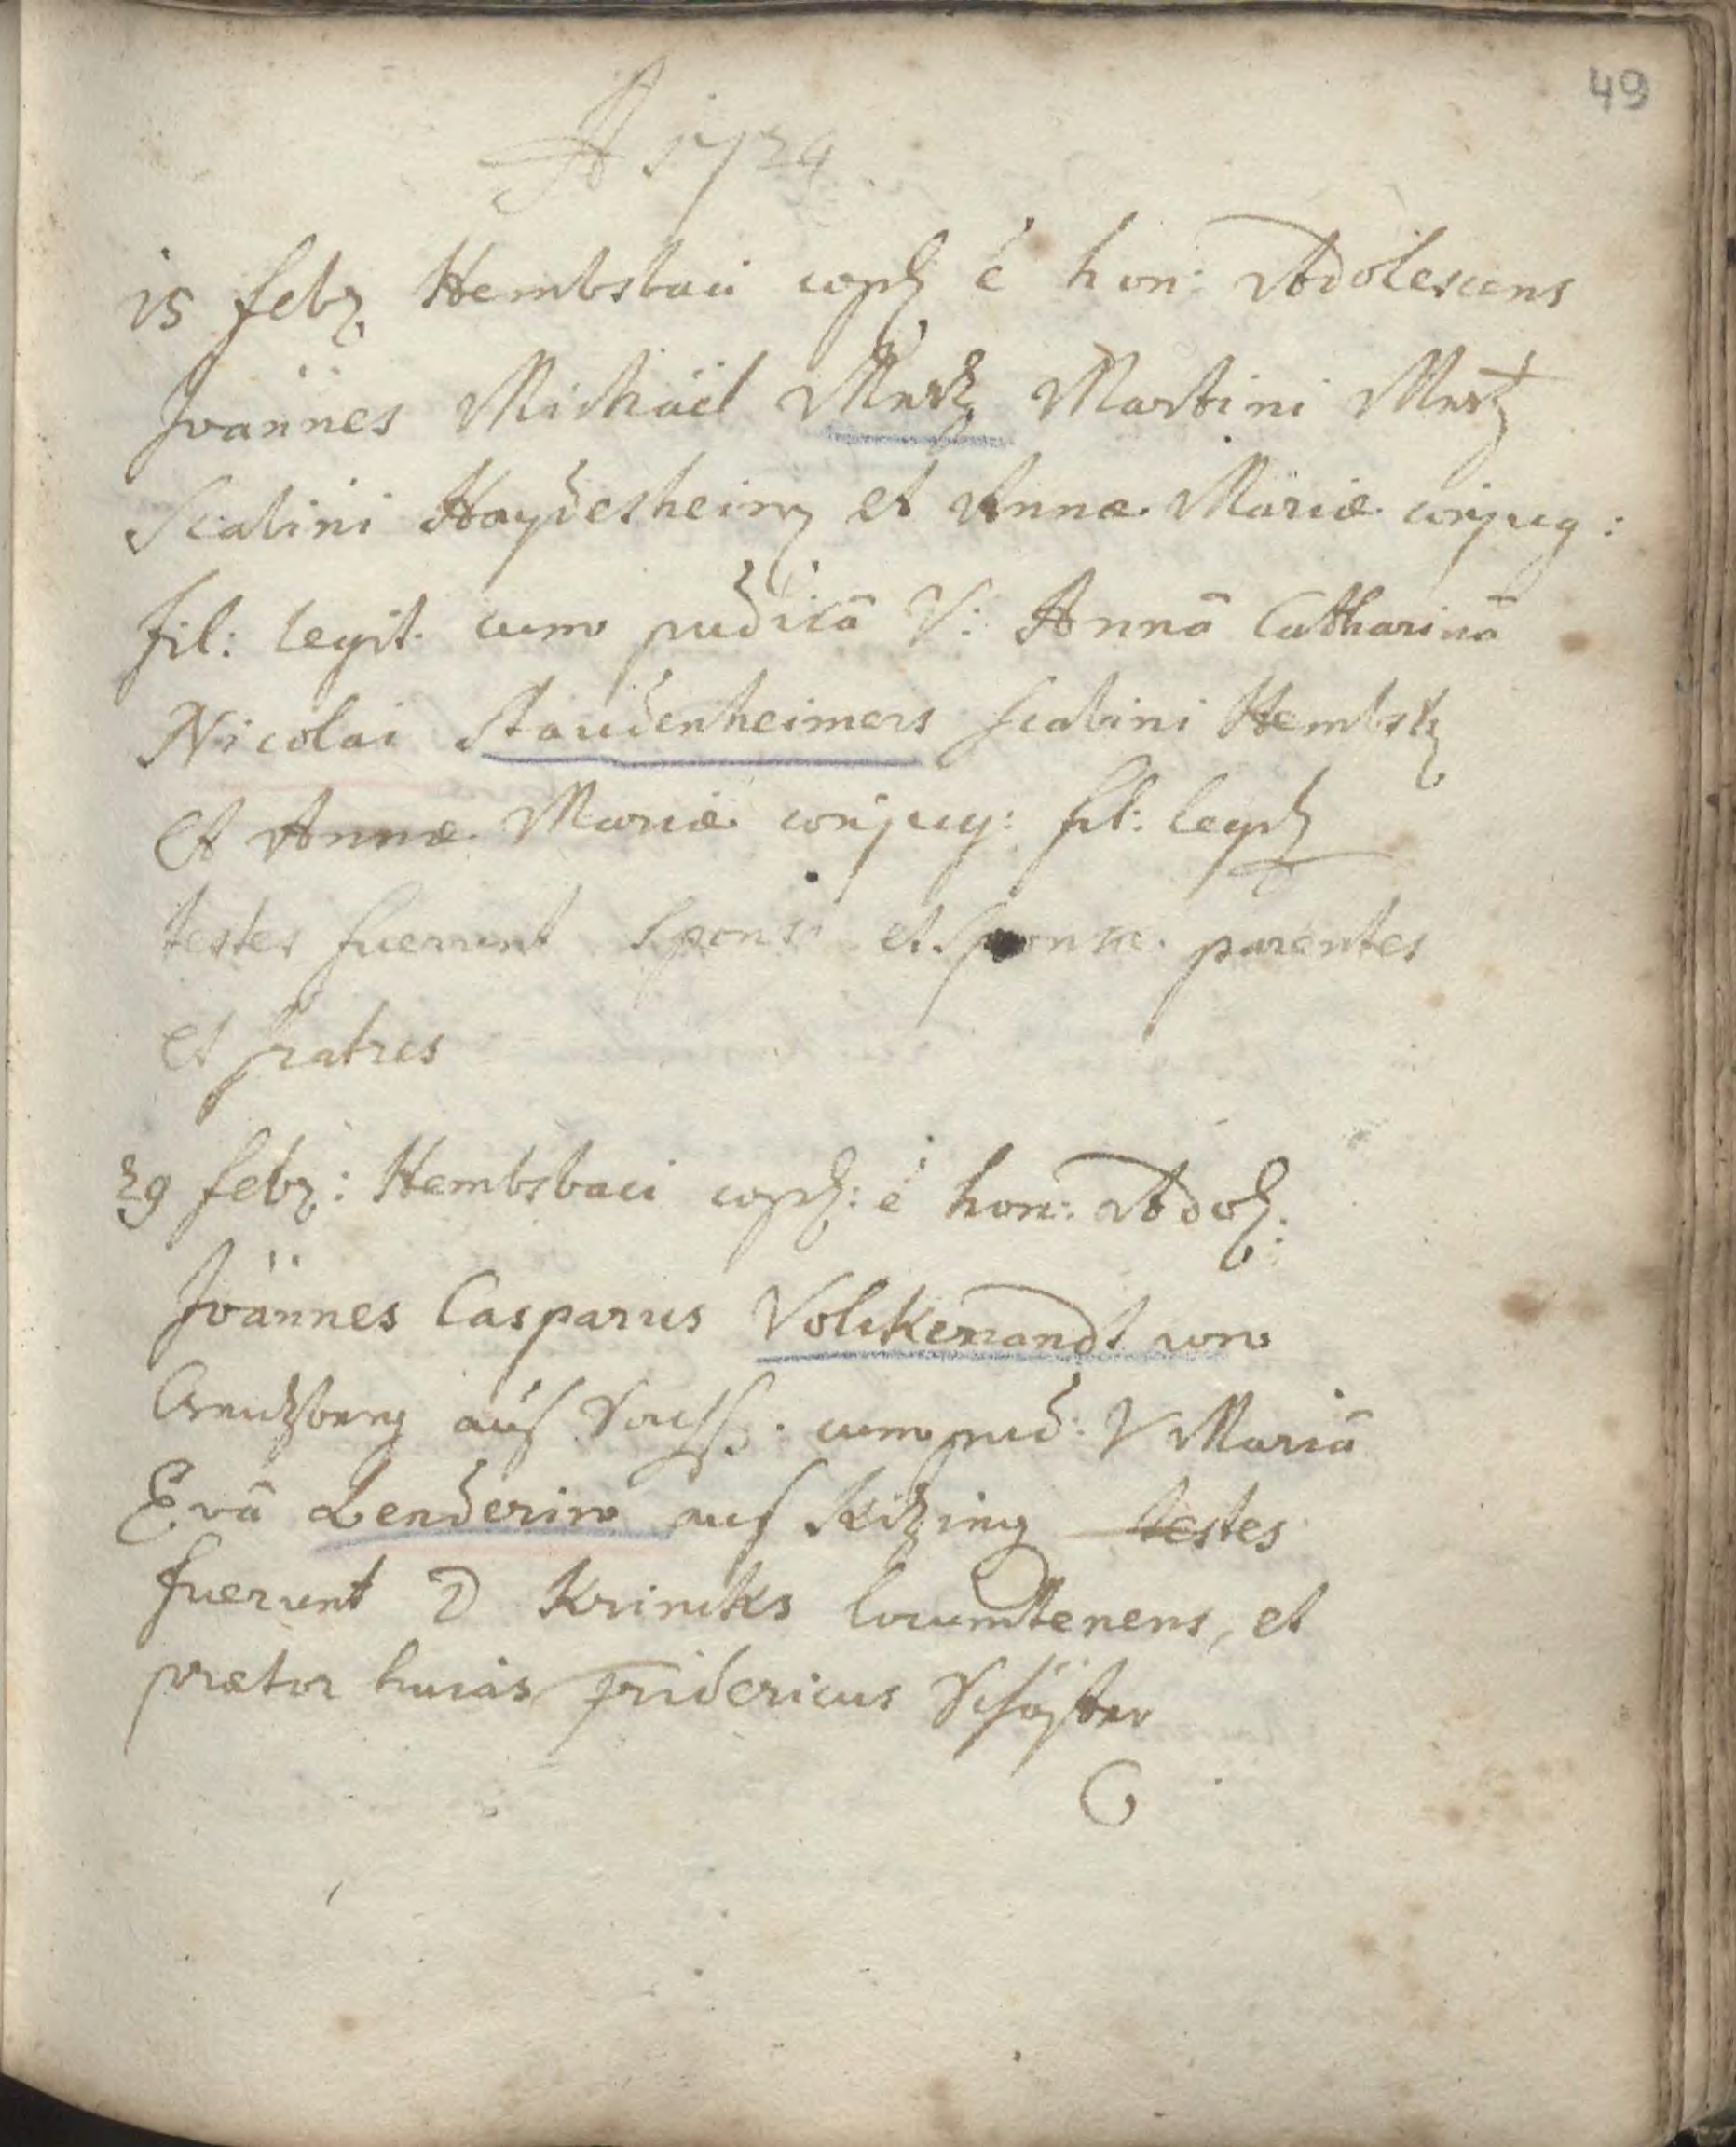 49
A 1724
15 febr Hembsbaci cop: ẽ hon: Adolescens
Joannes Michäel Mertz Martini Mertz
Scabini Haydesheim et Annæ Mariæ conjug:
fil: legit. cum pudicā V: Annā Catharinā
Nicolai Staudenheimers scabini Hembsb
et Annæ Mariæ conjug: fil: legit
testes fuerunt sponsi et sponsæ parentes
et fratres
29 febr: Hembsbaci cop: ẽ hon: Adol:
Joännes Casparus Volckenandt von
Creutzberg auß cum pud: V Mariā
Evā Lenderin auß Kitzing testes
fuerunt D Krincks locumtenens, et
prætor huias fridericus